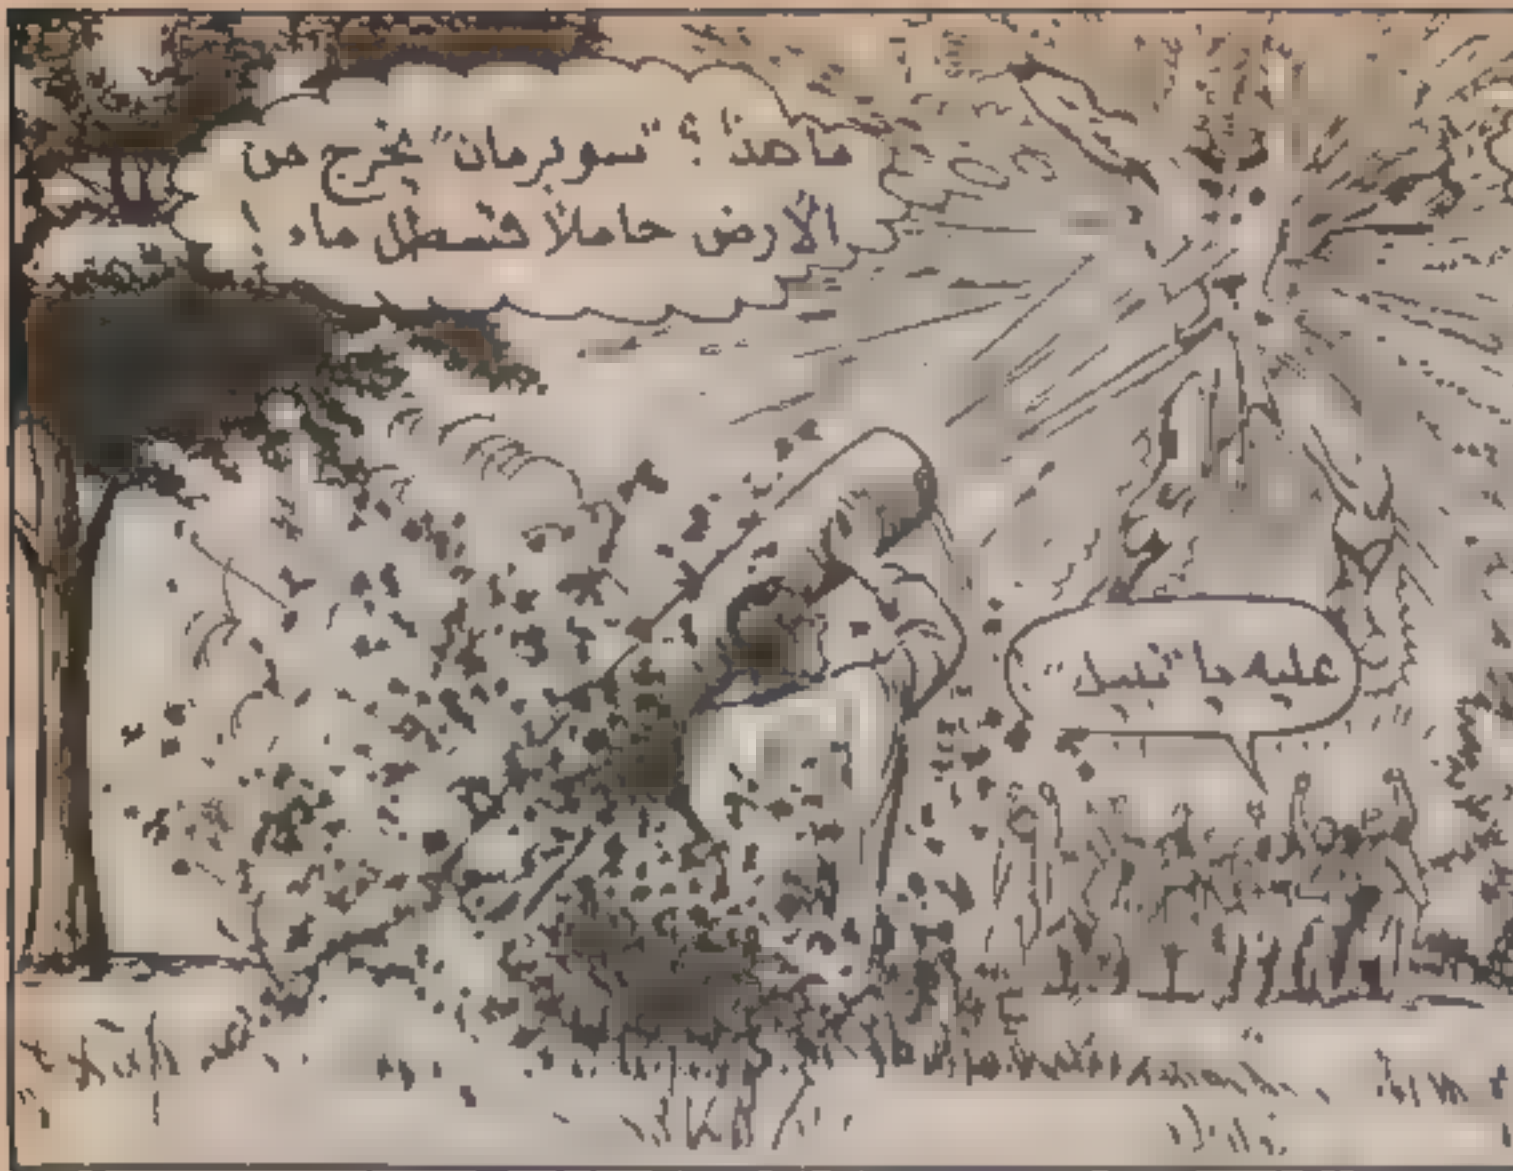 ماهذا ؟ "سوبرمان" يخرج من
الأرض حاملاً قسطل ماء !
عليه يا "نبيل"